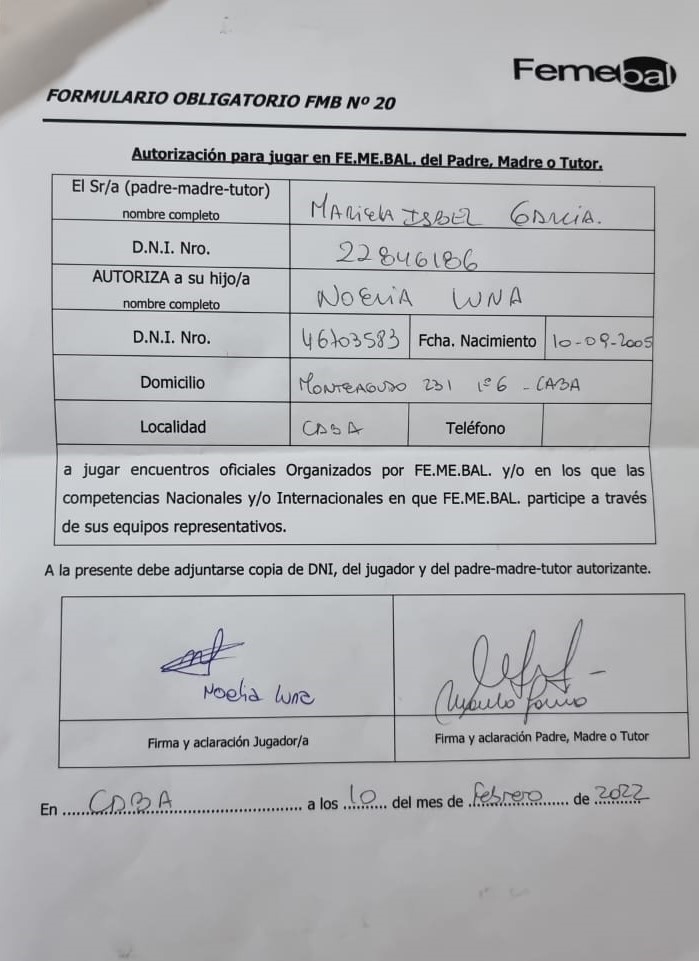 Femebal
FORMULARIO OBLIGATORIO FMB Nº 20
Autorización para jugar en FE.ME.BAL. del Padre, Madre o Tutor.
El Sr/a (padre-madre-tutor)
nombre completo
MARIELA ISABEL GARCIA.
D.N.I. Nro.
22846186
AUTORIZA a su hijo/a
nombre completo
NOELIA LUNA
D.N.I. Nro.
46703583
Fcha. Nacimiento
10-09-2005
Domicilio
MONTEAGUDO 231 1º 6 - CABA
Localidad
CABA
Teléfono
a jugar encuentros oficiales Organizados por FE.ME.BAL. y/o en los que las
competencias Nacionales y/o Internacionales en que FE.ME.BAL. participe a través
de sus equipos representativos.
A la presente debe adjuntarse copia de DNI, del jugador y del padre-madre-tutor autorizante.
Noelia Luna
Firma y aclaración Jugador/a
Firma y aclaración Padre, Madre o Tutor
En CABA a los 10 del mes de febrero de 2022